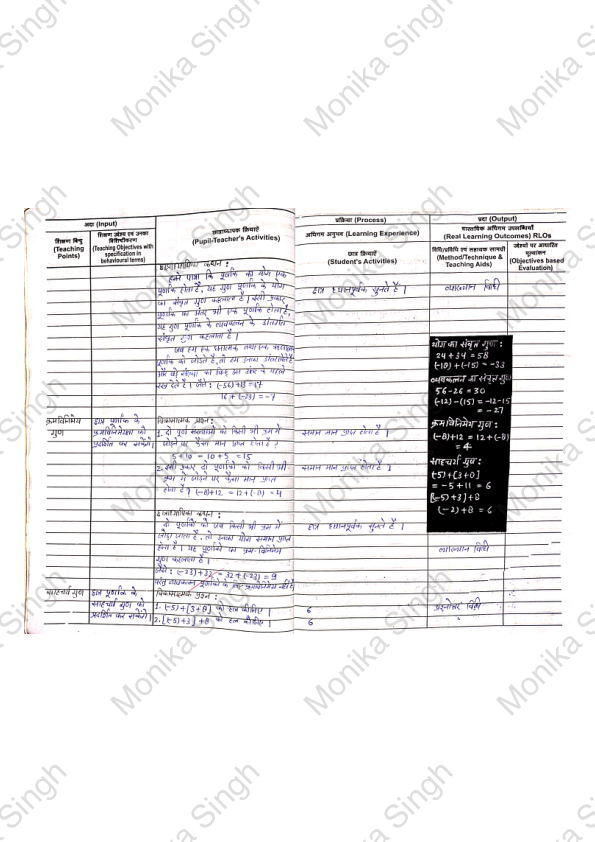 अदा (Input)
शिक्षण बिन्दु
(Teaching
Points)
शिक्षण उद्देश्य एवं उनका
विशिष्टीकरण
(Teaching Objectives with
specification in
behavioural terms)
छात्राध्यापक क्रियाऐं
(Pupil-Teacher's Activities)
प्रक्रिया (Process)
अधिगम अनुभव (Learning Experience)
छात्र क्रियाऐं
(Student's Activities)
प्रदा (Output)
वास्तविक अधिगम उपलब्धियाँ
(Real Learning Outcomes) RLOs
विधि/प्रविधि एवं सहायक सामग्री
(Method/Technique &
Teaching Aids)
उद्देश्यों पर आधारित
मूल्यांकन
(Objectives based
Evaluation)
छात्राध्यापिका कथन :
हमने पाया कि पूर्णांक का योग एक
पूर्णांक होता है, यह गुण पूर्णांक के योग
का संवृत गुण कहलाता है। इसी प्रकार,
पूर्णांक का अंतर भी एक पूर्णांक होता है,
यह गुण पूर्णांक के व्यवकलन के अंतर्गत
संवृत गुण कहलाता है।
जब हम एक धनात्मक तथा एक ऋणात्मक
पूर्णांक को जोड़ते है, तो हम उनका अंतर लेते है
और बड़ी संख्या का चिन्ह अंतर के पहले
रख देते है। जैसे : (-56)+73 = 17
16 + (-23) = -7
छात्र ध्यानपूर्वक सुनते है।
व्याख्यान विधी
योग का संवृत गुण :
24 + 34 = 58
(-18) + (-15) = -33
व्यवकलन का संवृत गुण
56 - 26 = 30
(-12) - (15) = -12-15
= -27
क्रमविनिमेय गुण :
(-8)+12 = 12+(-8)
= 4
साहचर्य गुण :
(-5)+[3+8]
= -5 + 11 = 6
[(-5)+3]+8
(-2)+8 = 6
क्रमविनिमेय
गुण
छात्र पूर्णांक के
क्रमविनिमेयता को
प्रदर्शित कर सकेंगे।
विकासात्मक प्रश्न :
1. दो पूर्ण संख्याओं को किसी भी क्रम में
जोड़ने पर कैसा मान प्राप्त होता है ?
5 + 10 = 10 + 5 = 15
2. इसी प्रकार दो पूर्णांकों को किसी भी
क्रम में जोड़ने पर कैसा मान प्राप्त
होता है ? (-8)+12 = 12+(-8) = 4
समान मान प्राप्त होता है।
समान मान प्राप्त होता है।
छात्राध्यापिका कथन :
दो पूर्णांकों को जब किसी भी क्रम में
जोड़ा जाता है, तो उनका योग समान प्राप्त
होता है। यह पूर्णांकों का क्रम-विनिमेय
गुण कहलाता है।
जैसे : (-23)+32 = 32+(-23) = 9
परंतु व्यवकलन पूर्णांकों के लिए क्रमविनिमेय नहीं है
छात्र ध्यानपूर्वक सुनते है।
व्याख्यान विधी
साहचर्य गुण
छात्र पूर्णांक के
साहचर्य गुण को
प्रदर्शित कर सकेंगे।
विकासात्मक प्रश्न :
1. (-5)+[3+8] को हल कीजिए।
2. [(-5)+3]+8 को हल कीजिए।
6
6
प्रश्नोत्तर विधि
Monika Singh